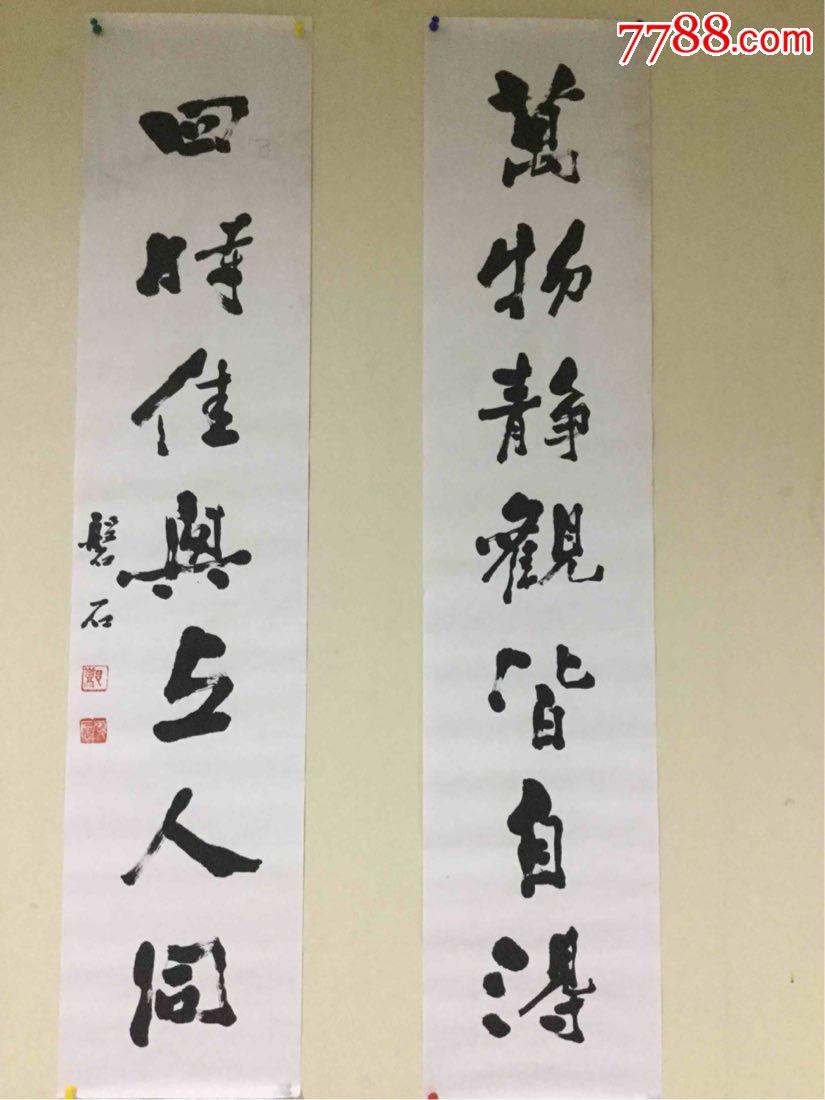 7788.com
萬物静觀皆自得
四時佳興与人同
磐石